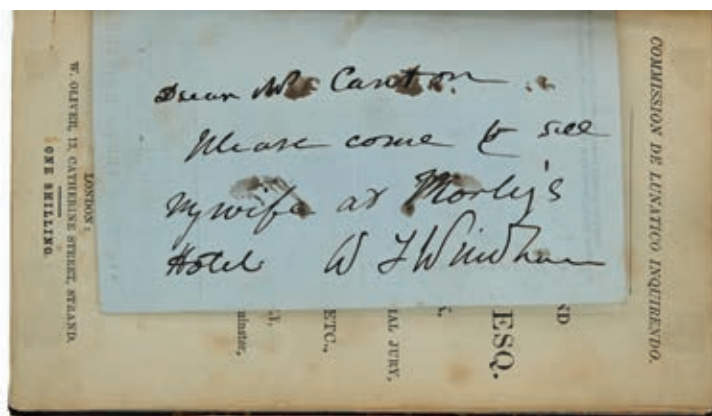 Dear Mr Canton
Please come to see
my wife at Morley's
Hotel W F Windham
COMMISSION DE LUNATICO INQUIRENDO.
ND
ESQ.
IAL JURY,
ETC.,
minster,
LONDON:
W. OLIVER, 13, CATHERINE STREET, STRAND.
ONE SHILLING.